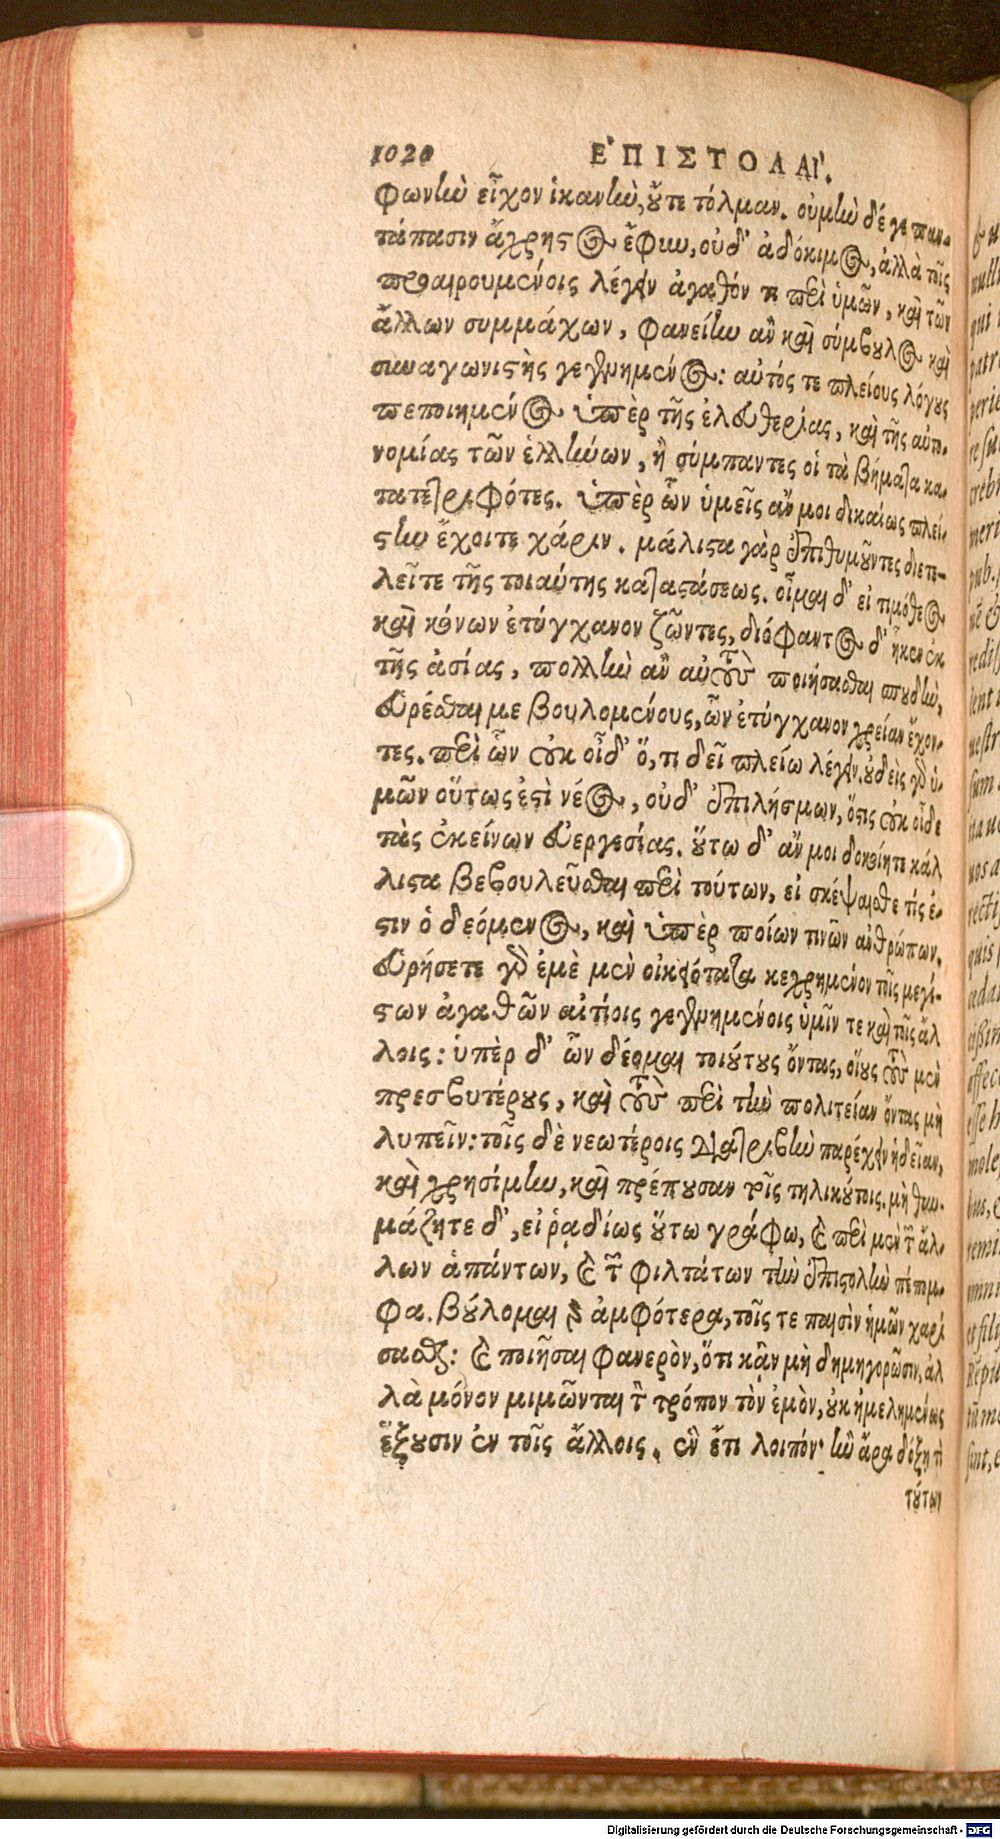 1020 ΕΠΙΣΤΟΛΑΙ.
φωνὴν εἶχον ἱκανὴν, ὄυτε τόλμαν. οὐ μὴν δέ γε παν-
τάπασιν ἄχρηστος ἔφυν, οὐδ' ἀδόκιμος, ἀλλὰ τοῖς
προαιρουμένοις λέγειν ἀγαθόν τι περὶ ὑμῶν, καὶ τῶν
ἄλλων συμμάχων, φανείην ἂν καὶ σύμβουλος καὶ
συναγωνιστὴς γεγενημένος: αὐτός τε πλείους λόγους
πεποιημένος ὑπὲρ τῆς ἐλευθερίας, καὶ τῆς αὐτο-
νομίας τῶν ἑλλήνων, ἢ σύμπαντες οἱ τὰ βήματα κα-
τατετριφότες. ὑπὲρ ὧν ὑμεῖς ἄν μοι δικαίως πλεί-
στην ἔχοιτε χάριν. μάλιστα γὰρ ἐπιθυμοῦντες διετε-
λεῖτε τῆς τοιαύτης καταστάσεως. οἶμαι δ' εἰ τιμόθεος
καὶ κόνων ἐτύγχανον ζῶντες, διόφαντος δ' ἧκεν ἐκ
τῆς ἀσίας, πολλὴν ἂν αὐτοὺς ποιήσασθαι σπουδὴν,
εὑρέσθαι με βουλομένους, ὧν ἐτύγχανον χρείαν ἔχον-
τες. περὶ ὧν οὐκ οἶδ' ὅ, τι δεῖ πλείω λέγειν. οὐδεὶς γὰρ ὑ-
μῶν οὕτως ἐστὶ νέος, οὐδ' ἐπιλήσμων, ὅστις οὐκ οἶδε
τὰς ἐκείνων εὐεργεσίας. οὕτω δ' ἄν μοι δοκοίητε κάλ
λιστα βεβουλεῦσθαι περὶ τούτων, εἰ σκέψαισθε τίς ἐ-
στιν ὁ δεόμενος, καὶ ὑπὲρ ποίων τινῶν ἀνθρώπων.
εὑρήσετε γὰρ ἐμὲ μὲν οἰκειότατα κεχρημένον τοῖς μεγί-
στων ἀγαθῶν αἰτίοις γεγενημένοις ὑμῖν τε καὶ τοῖς ἄλ
λοις: ὑπὲρ δ' ὧν δέομαι τοιούτους ὄντας, οἵους τοὺς μὲν
πρεσβυτέρους, καὶ τοὺς περὶ τὴν πολιτείαν ὄντας μὴ
λυπεῖν: τοῖς δὲ νεωτέροις διατριβὴν παρέχειν ἡδεῖαν,
καὶ χρησίμην, καὶ πρέπουσαν τοῖς τηλικούτοις. μὴ θαυ-
μάζητε δ', εἰ ῥαδίως οὕτω γράφω, καὶ περὶ μὲν τῶν ἄλ-
λων ἁπάντων, καὶ τῶν φιλτάτων τὴν ἐπιστολὴν πέπομ-
φα. βούλομαι γὰρ ἀμφότερα, τοῖς τε παισὶν ἡμῶν χαρί
σασθαι: καὶ ποιῆσαι φανερὸν, ὅτι κἂν μὴ δημηγορῶσιν, ἀλ
λὰ μόνον μιμῶνται τὸν τρόπον τὸν ἐμὸν, οὐκ ἠμελημένως
ἕξουσιν ἐν τοῖς ἄλλοις. ἓν ἔτι λοιπόν· ἢν ἄρα δόξῃ τι
τούτων
Digitalisierung gefördert durch die Deutsche Forschungsgemeinschaft - DFG